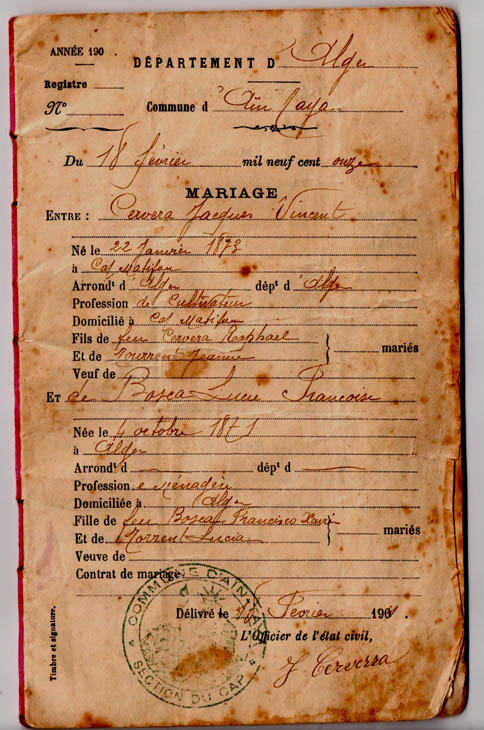 ANNÉE 190 .
DÉPARTEMENT D'Alger
Registre
N°
Commune d'Aïn Taya
Du 18 février mil neuf cent onze
MARIAGE
ENTRE : Cervera Jacques Vincent
Né le 22 Janvier 1873
à Cap Matifou
Arrondt d'Alger dépt d'Alger
Profession de Cultivateur
Domicilié à Cap Matifou
Fils de feu Cervera Raphael
Et de Mourren Jeanne
mariés
Veuf de
Et de Bosca Lucie Françoise
Née le 4 octobre 1871
à Alger
Arrondt d dépt d
Profession
Domiciliée à Alger
Fille de feu Bosca Francisco Xavier
Et de Morren Lucia
mariés
Veuve de
Contrat de mariage:
Délivré le Février 190
L'Officier de l'état civil,
J Cerverra
Timbre et signature.
COMMUNE D'AIN-TAYA
SECTION DU CAP